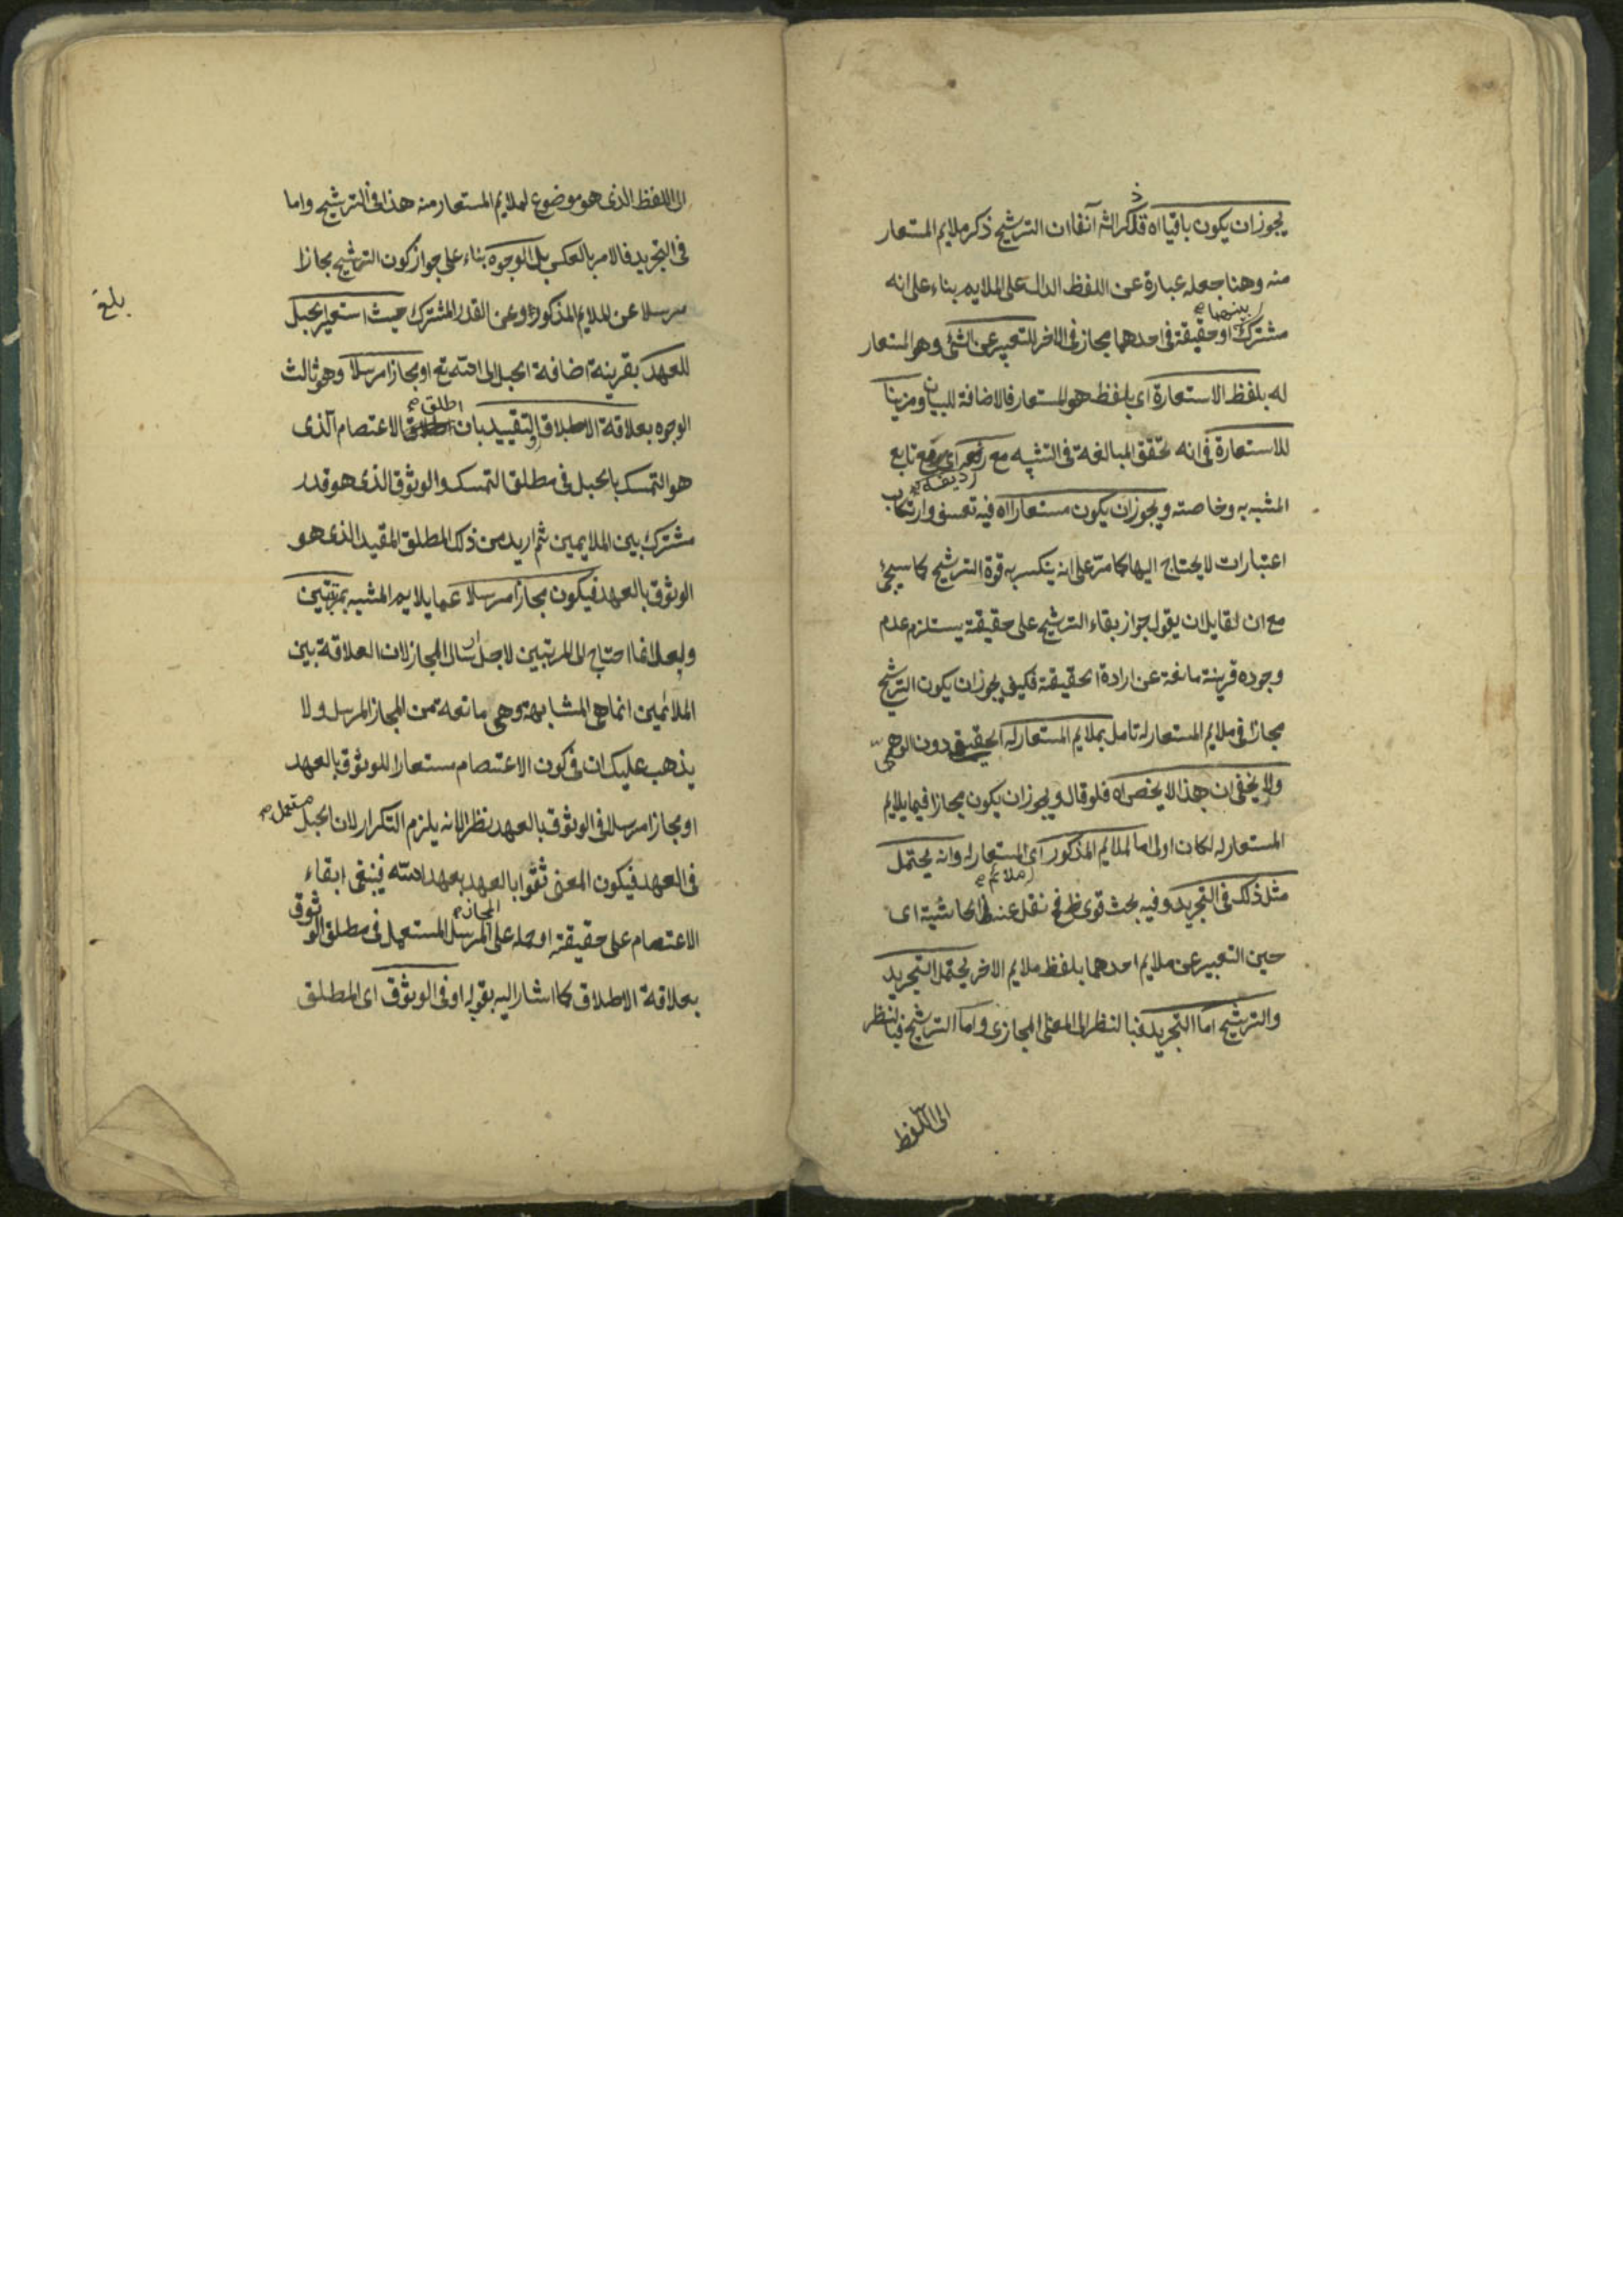 يجوز ان يكون باقيا اه قد ذكر الشه آنفا ان الترشيح ذكر ملايم المستعار
منه وهنا جعله عبارة عن اللفظ الدال على الملايم بناء على انه
مشترك بينهما او حقيقة فى احدهما مجاز فى الاخر للتعبير عن الشئ وهو المستعار
له بلفظ الاستعارة اى بلفظ هو المستعار فالاضافة للبيان ومزينا
للاستعارة فى انه تحقق المبالغة فى التشبيه مع رديفه اى مع تابع
المشبه به وخاصته ويجوز ان يكون مستعارا اه فيه تعسف وارتكاب
اعتبارات لا يحتاج اليها كما مرّ على انه ينكسر به قوة الترشيح كما سيجئ
مع ان لقايل ان يقول جواز بقاء الترشيح على حقيقة يستلزم عدم
وجوده قرينة مانعة عن ارادة الحقيقة فكيف يجوز ان يكون الترشيح
مجازا فى ملايم المستعار له تامل بملايم المستعار له الحقيقى دون الوهمىّ
ولا يخفى ان هذا لا يخص اه فلو قال ويجوز ان يكون مجازا فيما يلايم
المستعار له لكان اولى اما الملايم المذكور اى ملائم المستعار له وانه يحتمل
مثل ذلك فى التجريد وفيه بحث قوى نقل عنه فى الحاشية اى
حين التعبير عن ملايم احدهما بلفظ ملايم الاخر يحتمل التجريد
والترشيح اما التجريد فبالنظر الى المعنى المجازى واما الترشيح فبالنظر
الى اللفظ
الى اللفظ الذى هو موضوع لملايم المستعار منه هذا فى الترشيح واما
فى التجريد فالامر بالعكس بل الوجوه بناء على جواز كون الترشيح مجازا
مرسلا عن الملايم المذكور او عن القدر المشترك حيث استعير الحبل
للعهد بقرينة اضافة الحبل الى الله تع او مجازا مرسلا وهو ثالث
الوجوه بعلاقة الاطلاق والتقييد بان اطلق الاعتصام الذى
هو التمسك بالحبل فى مطلق التمسك والوثوق الذى هو قدر
مشترك بين الملايمين ثم اريد من ذلك المطلق المقيد الذى هو
الوثوق بالعهد فيكون مجازا مرسلا عما يلايم المشبه بمرتبتين
ولعله انما احتاج الى المرتبتين لاجل ارسال المجاز لان العلاقة بين
الملائمين انما هى المشابهة وهى مانعة من المجاز المرسل ولا
يذهب عليك ان فى كون الاعتصام مستعارا للوثوق بالعهد
او مجازا مرسلا فى الوثوق بالعهد نظر الانه يلزم التكرار لان الحبل مستعمل
فى العهد فيكون المعنى ثقوا بالعهد بعهد الله فينبغى ابقاء
الاعتصام على حقيقته او حمله على المجاز المرسل المستعمل فى مطلق الوثوق
بعلاقة الاطلاق كما اشار اليه بقوله او فى الوثوق اى المطلق
بلغ